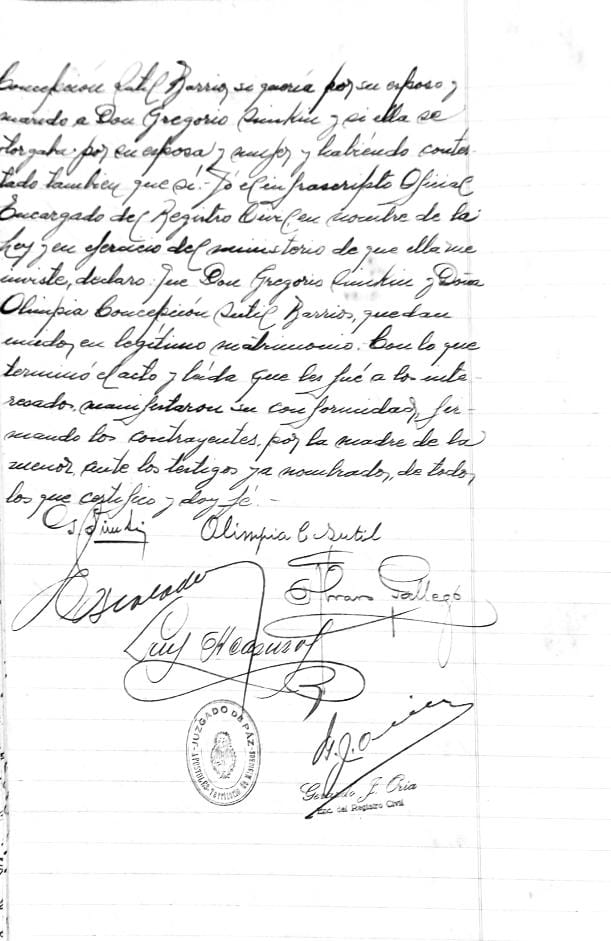 Concepción Sutil Barrios, si quería por su esposo y
marido a Don Gregorio Simkin y si ella se
otorgaba por su esposa y mujer y habiendo contes-
tado tambien que sí.- Yó el infrascripto Oficial
Encargado del Registro Civil en nombre de la
Ley y en ejercicio del ministerio de que ella me
inviste, declaro: que Don Gregorio Simkin y Doña
Olimpia Concepción Sutil Barrios, quedan
unidos en legítimo matrimonio. Con lo que
terminó el acto y leída que les fué a los inte-
resados, manifestaron su conformidad, fir-
mando los contrayentes, por la madre de la
menor, ante los testigos ya nombrados, de todos
los que certifico y doy fé.-
G. Simkin Olimpia C. Sutil
Gallego
Luis
JUZGADO DE PAZ
APOSTOLES - Territorio de Misiones
J. Oria
Enc. del Registro Civil